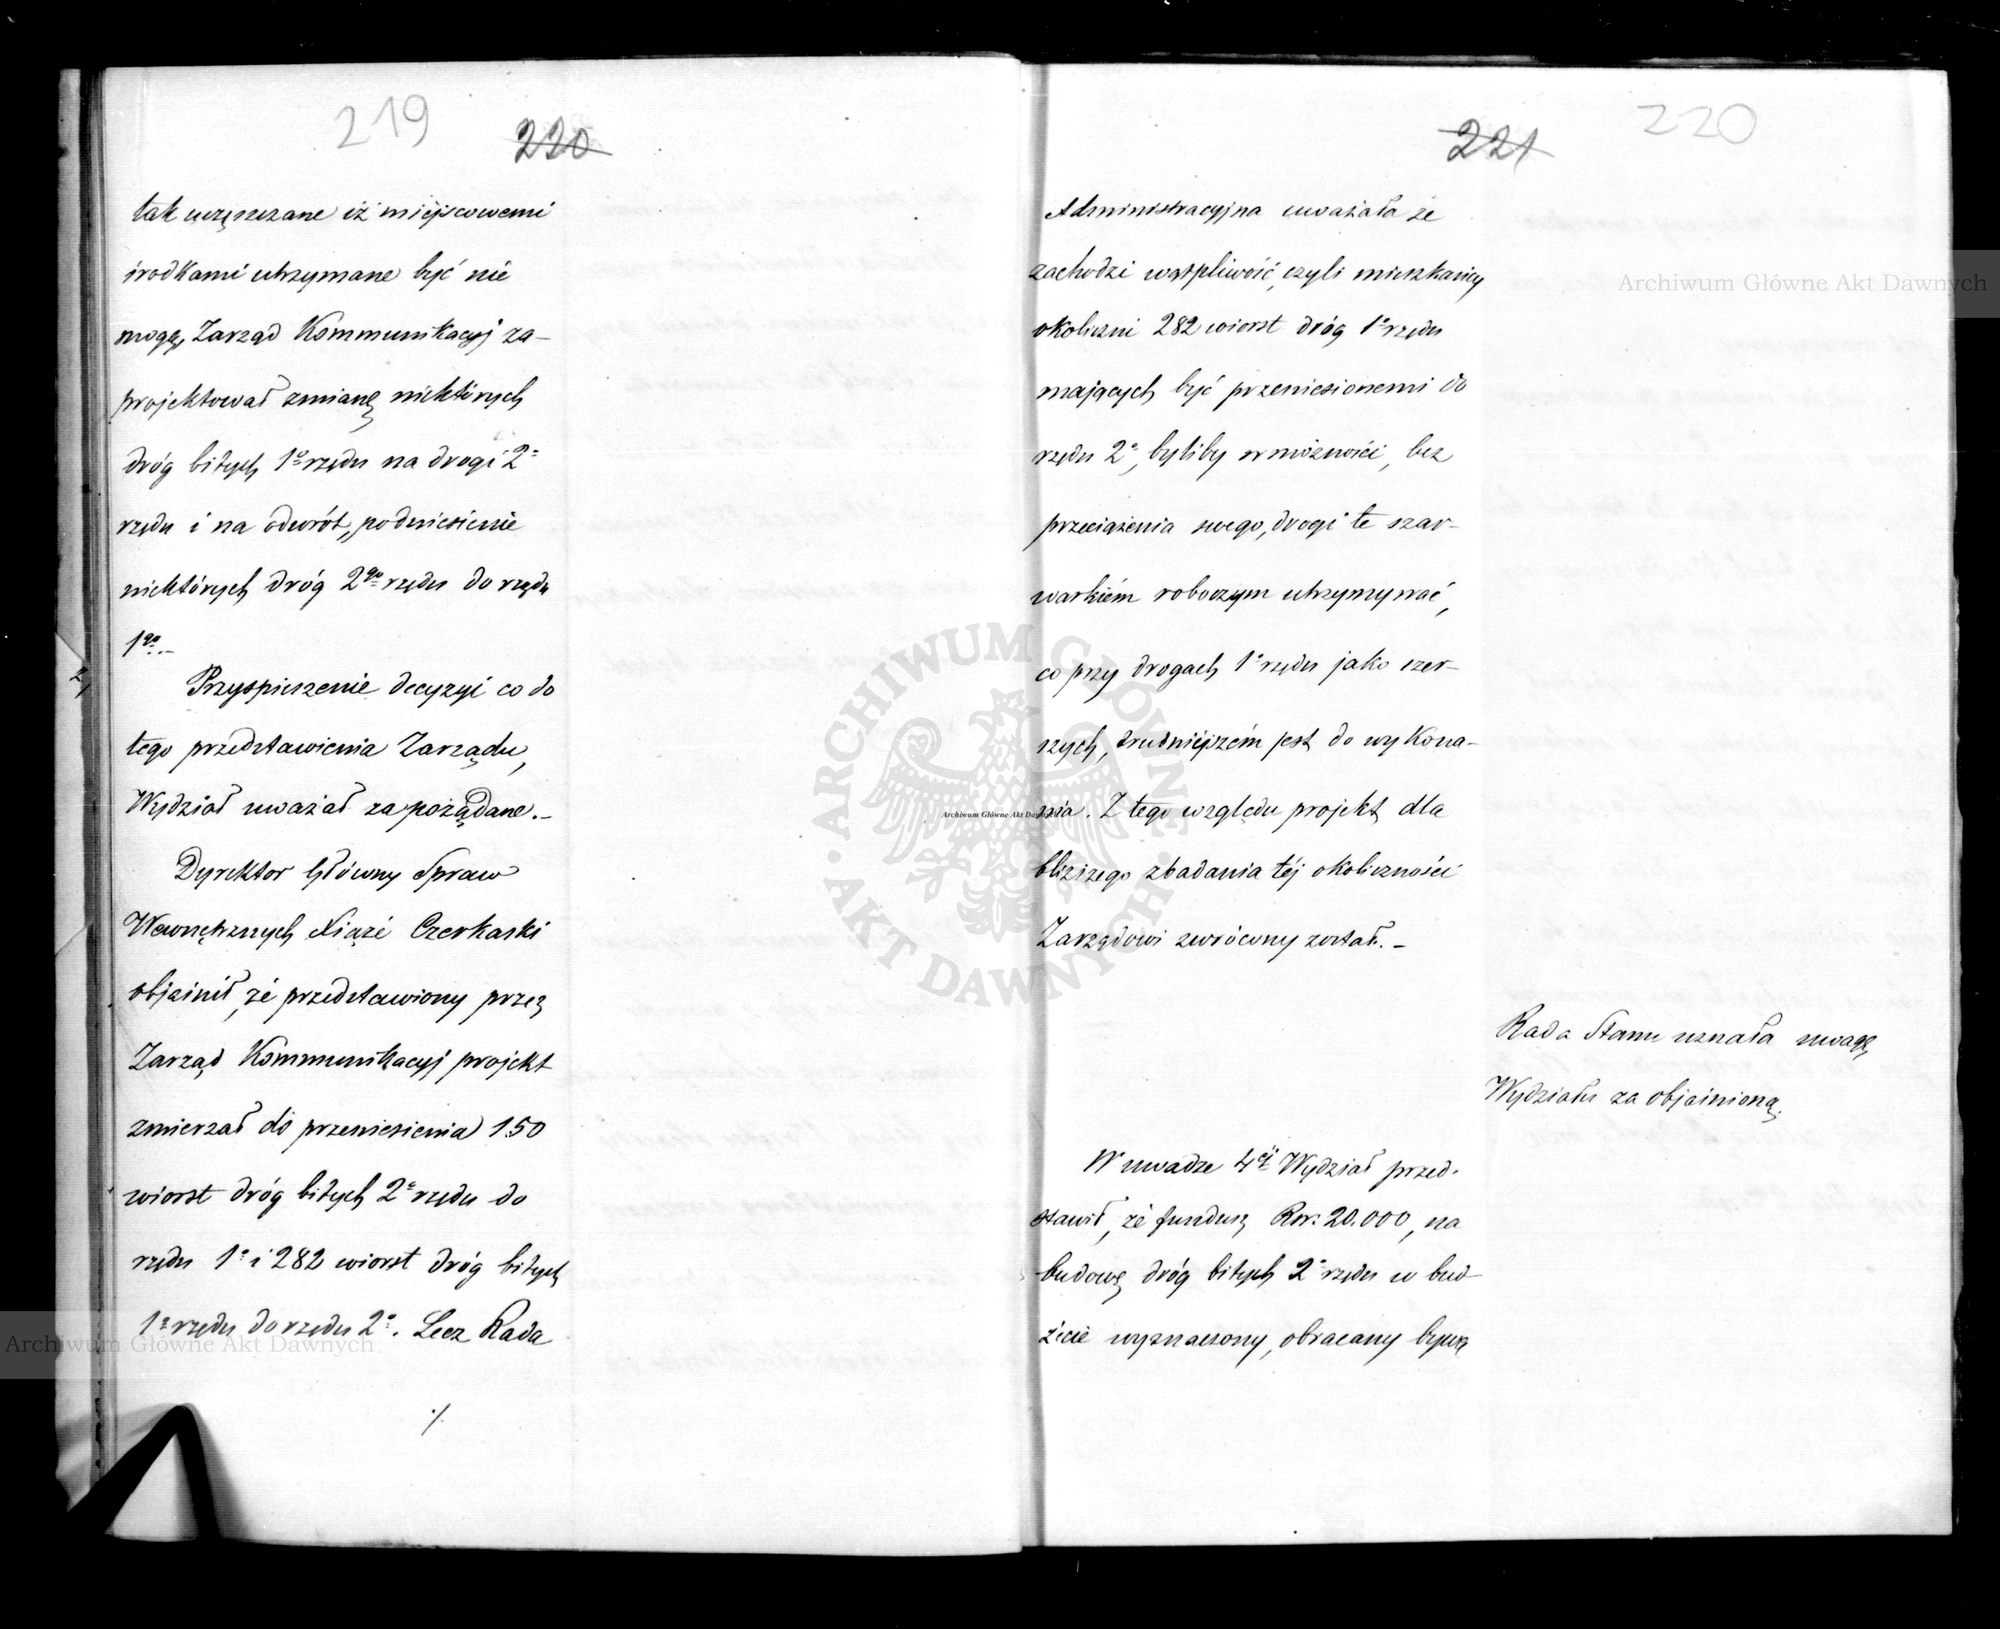 219
220
tak uczęszczane iż miejscowemi
środkami utrzymane być nie
mogą, Zarząd Kommunikacyj za-
projektował zmianę niektórych
dróg bitych 1o rzędu na drogi 2o
rzędu i na odwrót, podniesienie
niektórych dróg 2go rzędu do rzędu
1go.-
Przyspieszenie decyzyi co do
tego przedstawienia Zarządu,
Wydział uważał za pożądane.-
Dyrektor Główny Spraw
Wewnętrznych Xiąże Czerkaski
objaśnił, że przedstawiony przez
Zarząd Kommunikacyj projekt
zmierzał do przeniesienia 150
wiorst dróg bitych 2o rzędu do
rzędu 1o i 282 wiorst dróg bitych
1o rzędu do rzędu 2o. Lecz Rada
./.
221
220
Administracyjna uważała że
zachodzi wątpliwość, czyli mieszkańcy
okoliczni 282 wiorst dróg 1o rzędu
mających być przeniesionemi do
rzędu 2o, byliby w możności, bez
przeciążenia swego, drogi te szar-
warkiem roboczym utrzymywać,
co przy drogach 1o rzędu jako szer-
szych, trudniejszém jest do wykona-
nia. Z tego względu projekt dla
bliższego zbadania téj okoliczności
Zarządowi zwrócony został.-
Rada Stanu uznała uwagę
Wydziału za objaśnioną.
W uwadze 4éj Wydział przed-
stawił, że fundusz Rsr. 20.000, na
budowę dróg bitych 2o rzędu w bud-
żecie wyznaczony, obracany bywa
Archiwum Główne Akt Dawnych
Archiwum Główne Akt Dawnych
Archiwum Główne Akt Dawnych
ARCHIWUM GŁÓWNE
AKT DAWNYCH